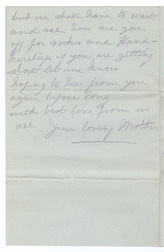 but we shall have to wait
and see, how are you
off for socks and Hand-
kerchiefs if you are getting
short let me know
hoping to hear from you
again before long
with best love from us
all Your loving Mother